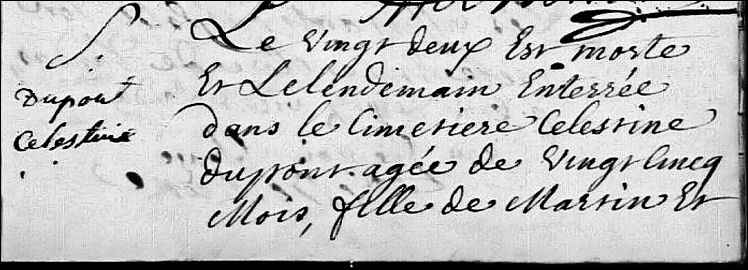 S.
Dupont
Celestine
Le vingt deux Est morte
Et Lelendemain Enterrée
dans le Cimetiere Celestine
dupont agée de vingt Cincq
Mois, fille de Martin Et